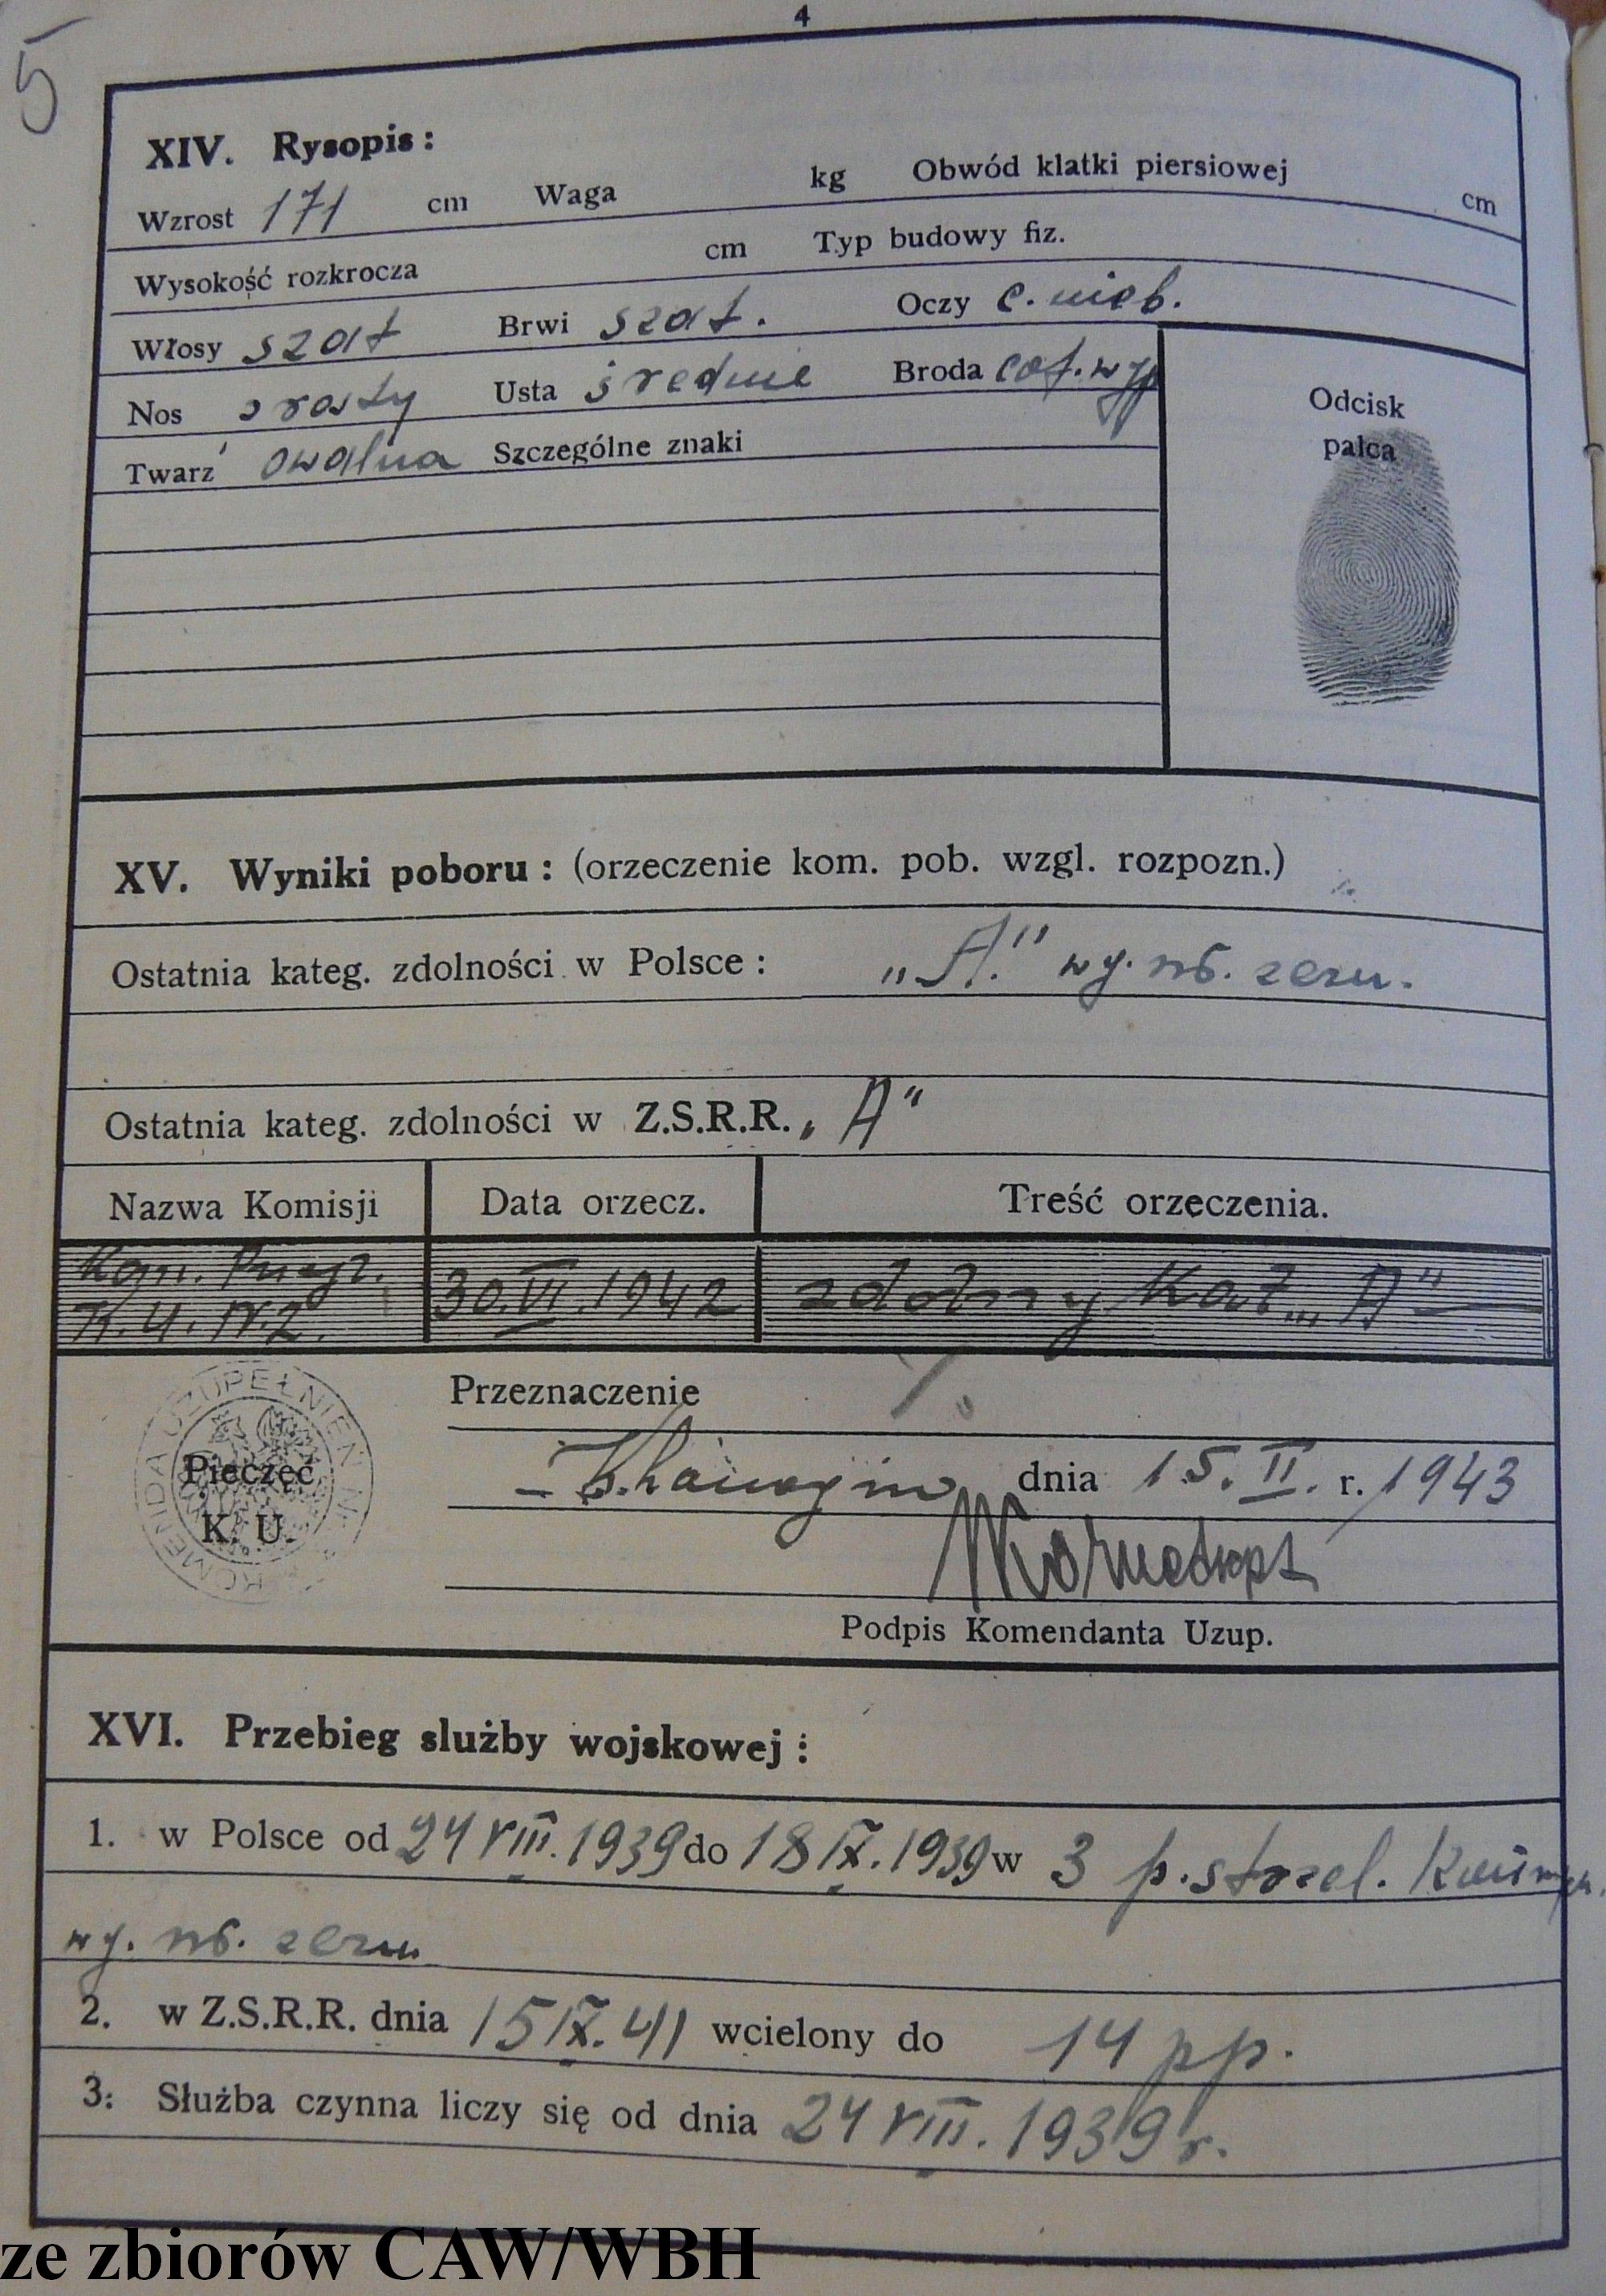 4
5
XIV. Rysopis:
Wzrost 171 cm Waga kg Obwód klatki piersiowej cm
Wysokość rozkrocza cm Typ budowy fiz.
Włosy szat Brwi szat. Oczy c. nieb.
Nos prosty Usta średnie Broda cof. wyp
Twarz owalna Szczególne znaki
Odcisk
palca
XV. Wyniki poboru: (orzeczenie kom. pob. wzgl. rozpozn.)
Ostatnia kateg. zdolności w Polsce: „A." wg. ns. zezn.
Ostatnia kateg. zdolności w Z.S.R.R. „A"
Nazwa Komisji Data orzecz. Treść orzeczenia.
Kom. Przegl. 30.VI.1942 zdolny kat. „A"
K.U. Nr.2.
KOMENDA UZUPEŁNIEŃ Nr.
Pieczęć
K. U.
Przeznaczenie
dnia 15. II. r. 1943
Podpis Komendanta Uzup.
XVI. Przebieg slużby wojskowej:
1. w Polsce od 24 VIII. 1939 do 18 IX. 1939 w 3 p. strzel. konnych.
wg. ns. zezn.
2. w Z.S.R.R. dnia 15 IX. 41 wcielony do 14 pp.
3. Służba czynna liczy się od dnia 24 VIII. 1939 r.
ze zbiorów CAW/WBH